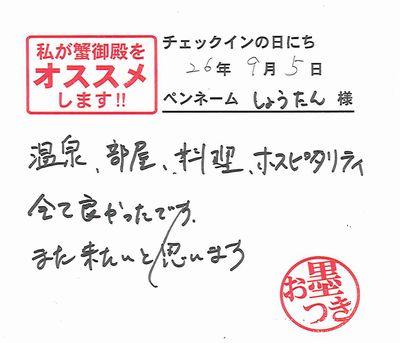 私が蟹御殿を
オススメ
します!!
チェックインの日にち
26年 9月 5日
ペンネーム しょうたん 様
温泉、部屋、料理、ホスピタリティ
全て良かったです。
また来たいと思います
墨
おつき